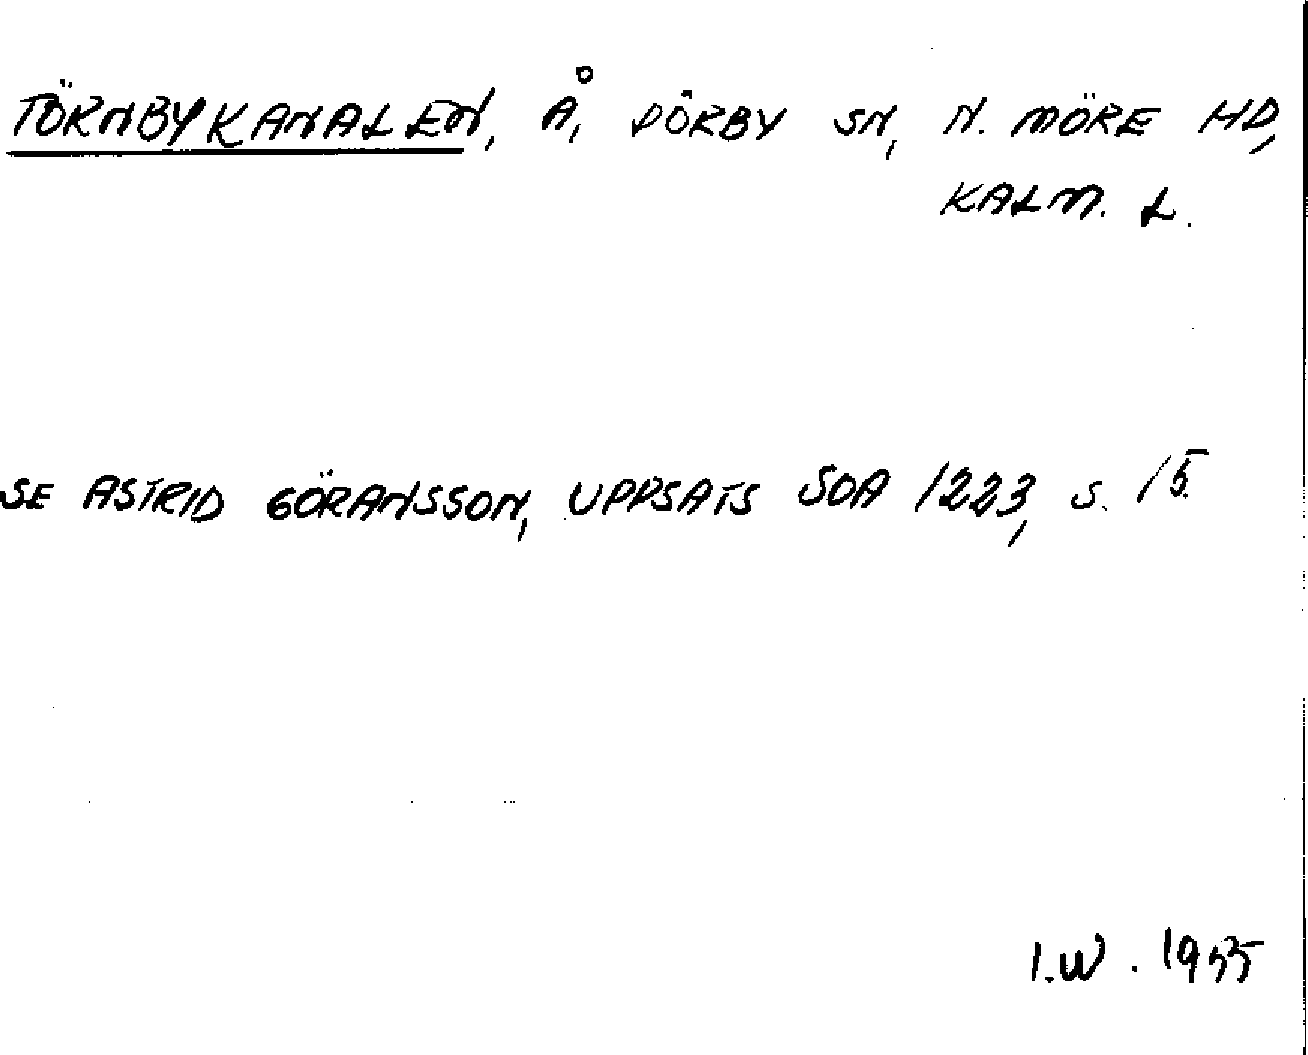 TÖRNBYKANALEN, Å, DÖRBY SN, N. MÖRE HD,
KALM. L.
SE ASTRID GÖRANSSON, UPPSATS SOA 1223, S. 15.
I.W. 1955